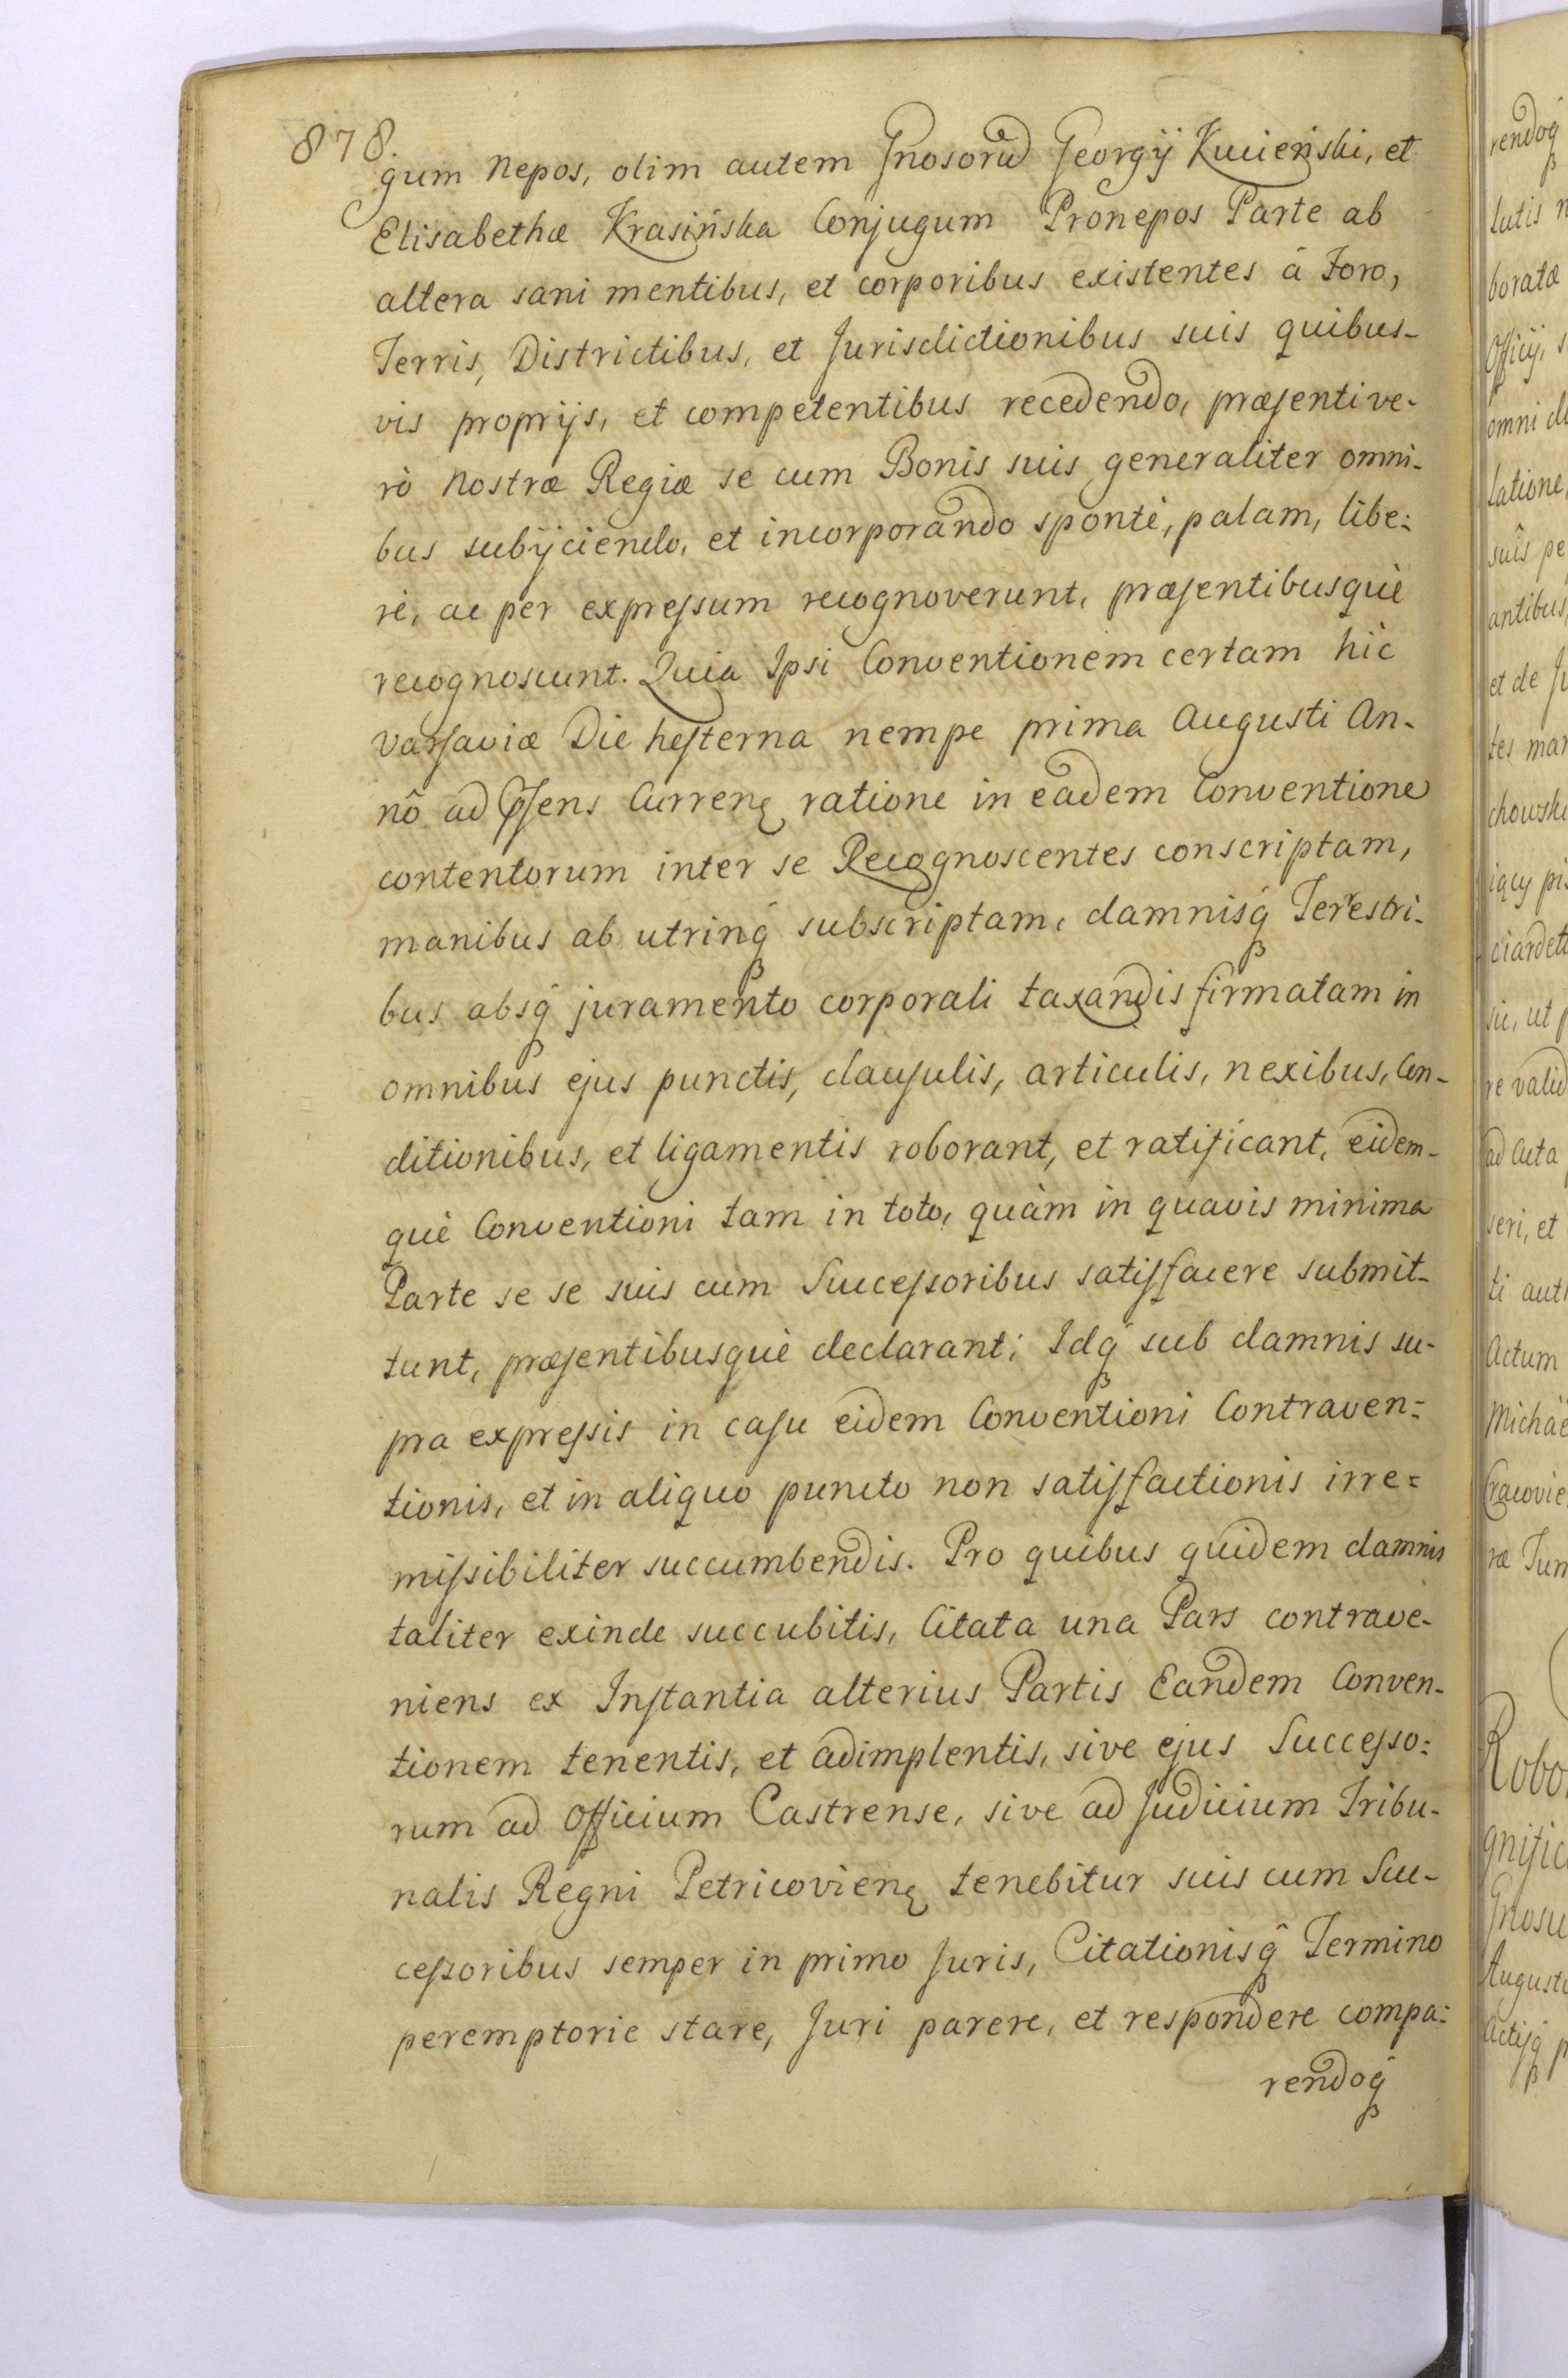 878.
gum Nepos, olim autem Gnosorũ Georgÿ Kucieński, et
Elisabethæ Krasińska Conjugum Pronepos Parte ab
altera sani mentibus, et corporibus existentes â Foro,
Terris, Districtibus, et Jurisdictionibus suis quibus-
vis proprÿs, et competentibus recedendo, præsenti ve-
rò Nostræ Regiæ se cum Bonis suis generaliter omni-
bus subÿciendo, et incorporando spontè, palam, libe:
rè, ac per expressum recognoverunt, præsentibusquè
recognoscunt. Quia Ipsi Conventionem certam hîc
Varsaviæ Die hesterna nempe prima Augusti An-
nô ad Psens Currenę ratione in eadem Conventione
contentorum inter se Recognoscentes conscriptam,
manibus ab utrinq́ subscriptam, damnisq́ Terrestri-
bus absq́ juramento corporali taxandis firmatam in
omnibus ejus punctis, clausulis, articulis, nexibus, Con-
ditionibus, et ligamentis roborant, et ratificant, eidem-
què Conventioni tam in toto, quàm in quavis minima
Parte se se suis cum Successoribus satisfacere submit-
tunt, præsentibusquè declarant; Idq́ sub damnis su-
pra expressis in casu eidem Conventioni Contraven:
tionis, et in aliquo puncto non satisfactionis irre=
missibiliter succumbendis. Pro quibus quidem damnis
taliter exinde succubitis, Citata una Pars contrave-
niens ex Instantia alterius Partis Eandem Conven-
tionem tenentis, et adimplentis, sive ejus Successo:
rum ad Officium Castrense, sive ad Judicium Tribu-
nalis Regni Petricovienę tenebitur suis cum Suc-
cessoribus semper in primo Juris, Citationisq́ Termino
peremptorie stare, Juri parere, et respondere compa:
rendoq́